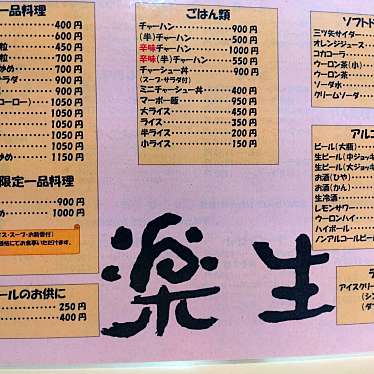 一品料理
400円
600円
450円
700円
700円
900円
900円
1050円
1050円
1050円
1050円
1150円
限定一品料理
900円
1000円
ールのお供に
250円
400円
ごはん類
チャーハン 900円
(半)チャーハン 500円
辛味チャーハン 1000円
辛味(半)チャーハン 550円
チャーシュー丼 900円
(スープ・サラダ付)
ミニチャーシュー丼 400円
マーボー飯 950円
大ライス 450円
ライス 350円
半ライス 200円
小ライス 150円
楽生
ソフトド
三ツ矢サイダー
オレンジジュース
コカコーラ
ウーロン茶(小)
ウーロン茶
ソーダ水
クリームソーダ
アルコ
ビール(大瓶)
生ビール(中ジョッキ
生ビール(大ジョッキ
お酒(ひや)
お酒(かん)
生冷酒
レモンサワー
ウーロンハイ
ハイボール
ノンアルコールビー
アイスクリー
(シン
(ダブ